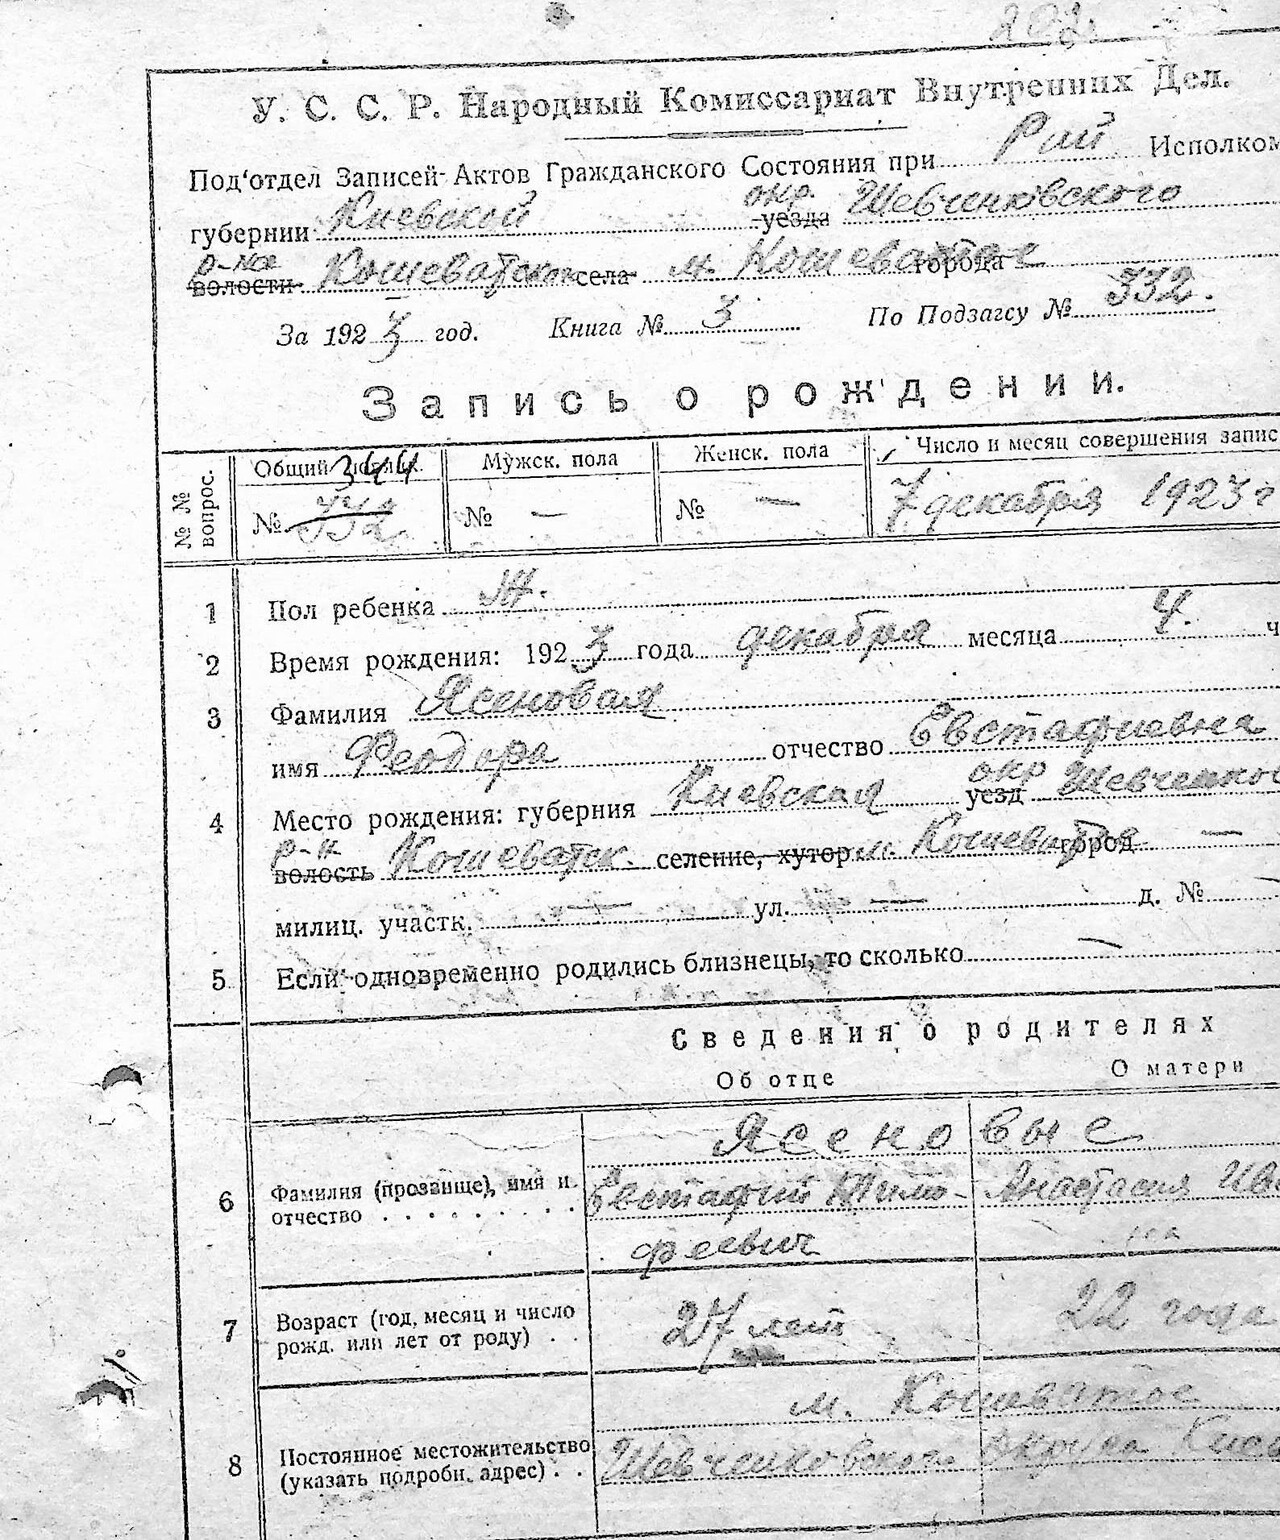 У. С. С. Р. Народный Комиссариат Внутренних Дел.
Под'отдел Записей Актов Гражданского Состояния при Рай Исполком
губернии Киевской окр. уезда Шевченковского
р-на волости Кошеватском села м. Кошеватое города
За 1923 год. Книга № 3 По Подзагсу № 332.
Запись о рождении.
№ № вопрос.
Общий 344 Мужск. пола Женск. пола Число и месяц совершения запис
№ 332 № — № — 7 декабря 1923 г
1 Пол ребенка Ж.
2 Время рождения: 1923 года декабря месяца 4. ч
3 Фамилия Ясеновая
имя Феодора отчество Евстафиевна
4 Место рождения: губерния Киевская окр уезд Шевченков
р-н волость Кошеватск. селение, хутор м. Кошеватое город —
милиц. участк. — ул. — д. № —
5 Если одновременно родились близнецы, то сколько —
Сведения о родителях
Об отце О матери
Ясеновые
6 Фамилия (прозвище), имя и отчество Евстафий Тимо- Анастасия Ива
феевич на
7 Возраст (год, месяц и число рожд. или лет от роду) 27 лет 22 года
м. Кошеватое
8 Постоянное местожительство (указать подробн. адрес) Шевченковского Округа Киев